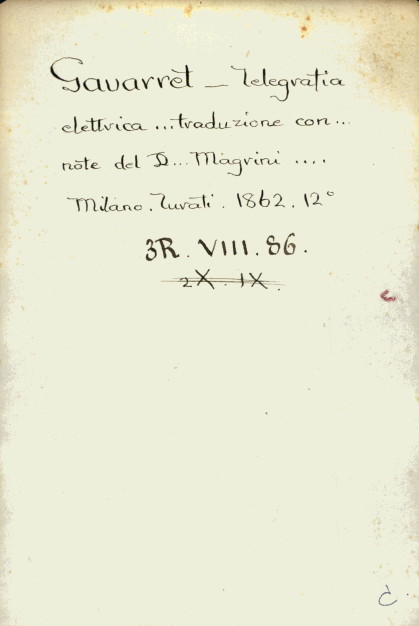 Gavarrèt — Telegrafia
elettrica ... traduzione con ...
note del D... Magrini ....
Milano. Turati. 1862. 12°
3R. VIII. 86.
2X. IX.
C.